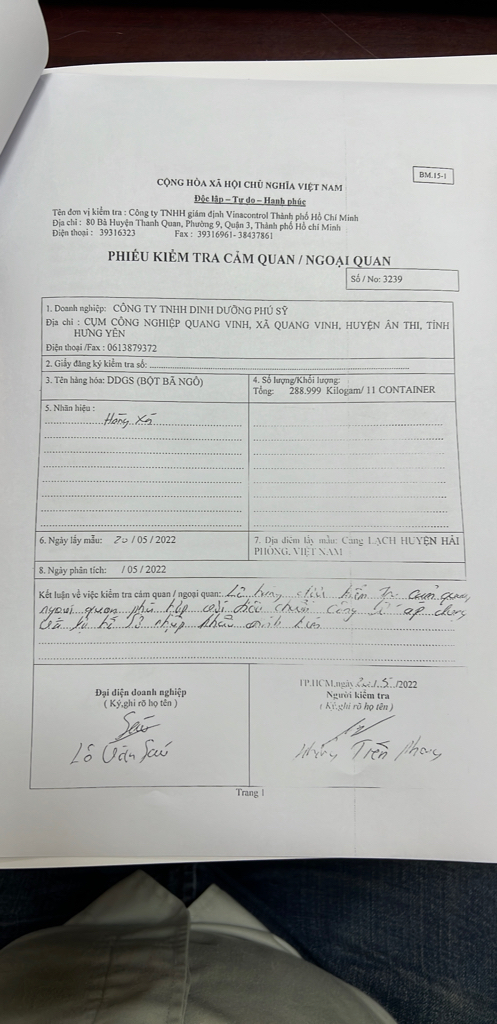 BM.15-1
CỘNG HÒA XÃ HỘI CHỦ NGHĨA VIỆT NAM
Độc lập – Tự do – Hạnh phúc
Tên đơn vị kiểm tra : Công ty TNHH giám định Vinacontrol Thành phố Hồ Chí Minh
Địa chỉ : 80 Bà Huyện Thanh Quan, Phường 9, Quận 3, Thành phố Hồ chí Minh
Điện thoại : 39316323 Fax : 39316961- 38437861
PHIẾU KIỂM TRA CẢM QUAN / NGOẠI QUAN
Số / No: 3239
1. Doanh nghiệp: CÔNG TY TNHH DINH DƯỠNG PHÚ SỸ
Địa chỉ : CỤM CÔNG NGHIỆP QUANG VINH, XÃ QUANG VINH, HUYỆN ÂN THI, TỈNH
HƯNG YÊN
Điện thoại /Fax : 0613879372
2. Giấy đăng ký kiểm tra số:
3. Tên hàng hóa: DDGS (BỘT BÃ NGÔ)
4. Số lượng/Khối lượng:
Tổng: 288.999 Kilogam/ 11 CONTAINER
5. Nhãn hiệu :
Hàng Xá
6. Ngày lấy mẫu: 20 / 05 / 2022
7. Địa điểm lấy mẫu: Cảng LẠCH HUYỆN HẢI
PHÒNG, VIỆT NAM
8. Ngày phân tích: / 05 / 2022
Kết luận về việc kiểm tra cảm quan / ngoại quan: Lô hàng cảm quan,
ngoại quan phù hợp với tiêu chuẩn công bố áp dụng
và hồ sơ nhập khẩu đính kèm
Đại diện doanh nghiệp
( Ký,ghi rõ họ tên )
Lô Văn Sáu
TP.HCM,ngày 20/5/2022
Người kiểm tra
( Ký,ghi rõ họ tên )
Tiến Phong
Trang 1